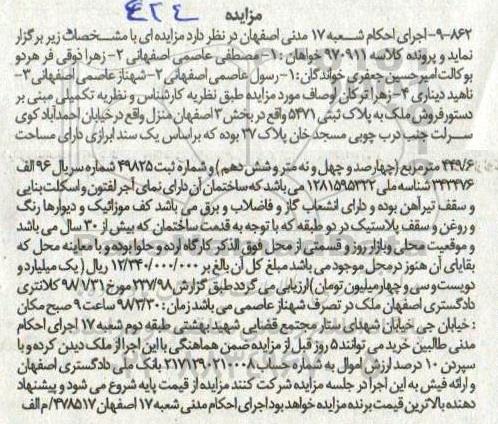 مزایده
۹-۸۶۲- اجرای احکام شعبه ۱۷ مدنی اصفهان در نظر دارد مزایده ای با مشخصات زیر برگزار
نماید و پرونده کلاسه ۹۷۰۹۱۱ خواهان: ۱- مصطفی عاصمی اصفهانی ۲- زهرا ذوقی فر هر دو
بوکالت امیرحسین جعفری خواندگان: ۱- رسول عاصمی اصفهانی ۲- شهناز عاصمی اصفهانی ۳-
ناهید دیناری ۴- زهرا ترکان اوصاف مورد مزایده طبق نظریه کارشناس و نظریه تکمیلی مبنی بر
دستور فروش ملک به پلاک ثبتی ۵۴۷۱ واقع در بخش ۳ اصفهان منزل واقع در خیابان احمدآباد کوی
سرلت جنب درب چوبی مسجد خان پلاک ۲۷ بوده که براساس یک سند ابرازی دارای مساحت
۴۴۹/۶ مترمربع (چهارصد و چهل و نه متر و شش دهم) و شماره ثبت ۴۹۸۲۵ شماره سریال ۹۶ الف
۳۴۲۴۷۶ شناسه ملی ۱۲۸۱۵۹۵۳۲۲ می باشد که ساختمان آن دارای نمای آجر لفتون و اسکلت بنایی
و سقف تیرآهن بوده و دارای انشعاب گاز و فاضلاب و برق می باشد کف موزائیک و دیوارها رنگ
و روغن و سقف پلاستیک در دو طبقه که با توجه به قدمت ساختمان که بیش از ۳۰ سال می باشد
و موقعیت محلی و بازار روز و قسمتی از محل فوق الذکر کارگاه ارده و حلوا بوده و با معاینه محل که
بقایای آن هنوز در محل موجود می باشد مبلغ کل آن بالغ بر ۱۲/۳۴۰/۰۰۰/۰۰۰ ریال (یک میلیارد و
دویست و سی و چهار میلیون تومان) ارزیابی می گردد طبق گزارش ۲۳۷/۹۸ مورخ ۹۸/۷/۳۱ کلانتری
دادگستری اصفهان ملک در تصرف شهناز عاصمی می باشد زمان: ۹۸/۳/۳۰ ساعت ۹ صبح مکان
: خیابان جی خیابان شهدای ستار مجتمع قضایی شهید بهشتی طبقه دوم شعبه ۱۷ اجرای احکام
مدنی طالبین خرید می توانند ۵ روز قبل از مزایده ضمن هماهنگی با این اجرا از ملک دیدن کرده و با
سپردن ۱۰ درصد ارزش اموال به شماره حساب بانک ملی دادگستری اصفهان
و ارائه فیش به این اجرا در جلسه مزایده شرکت کنند مزایده از قیمت پایه شروع می شود و پیشنهاد
دهنده بالاترین قیمت برنده مزایده خواهد بود اجرای احکام مدنی شعبه ۱۷ اصفهان ۴۷۸۵۱۷/م الف